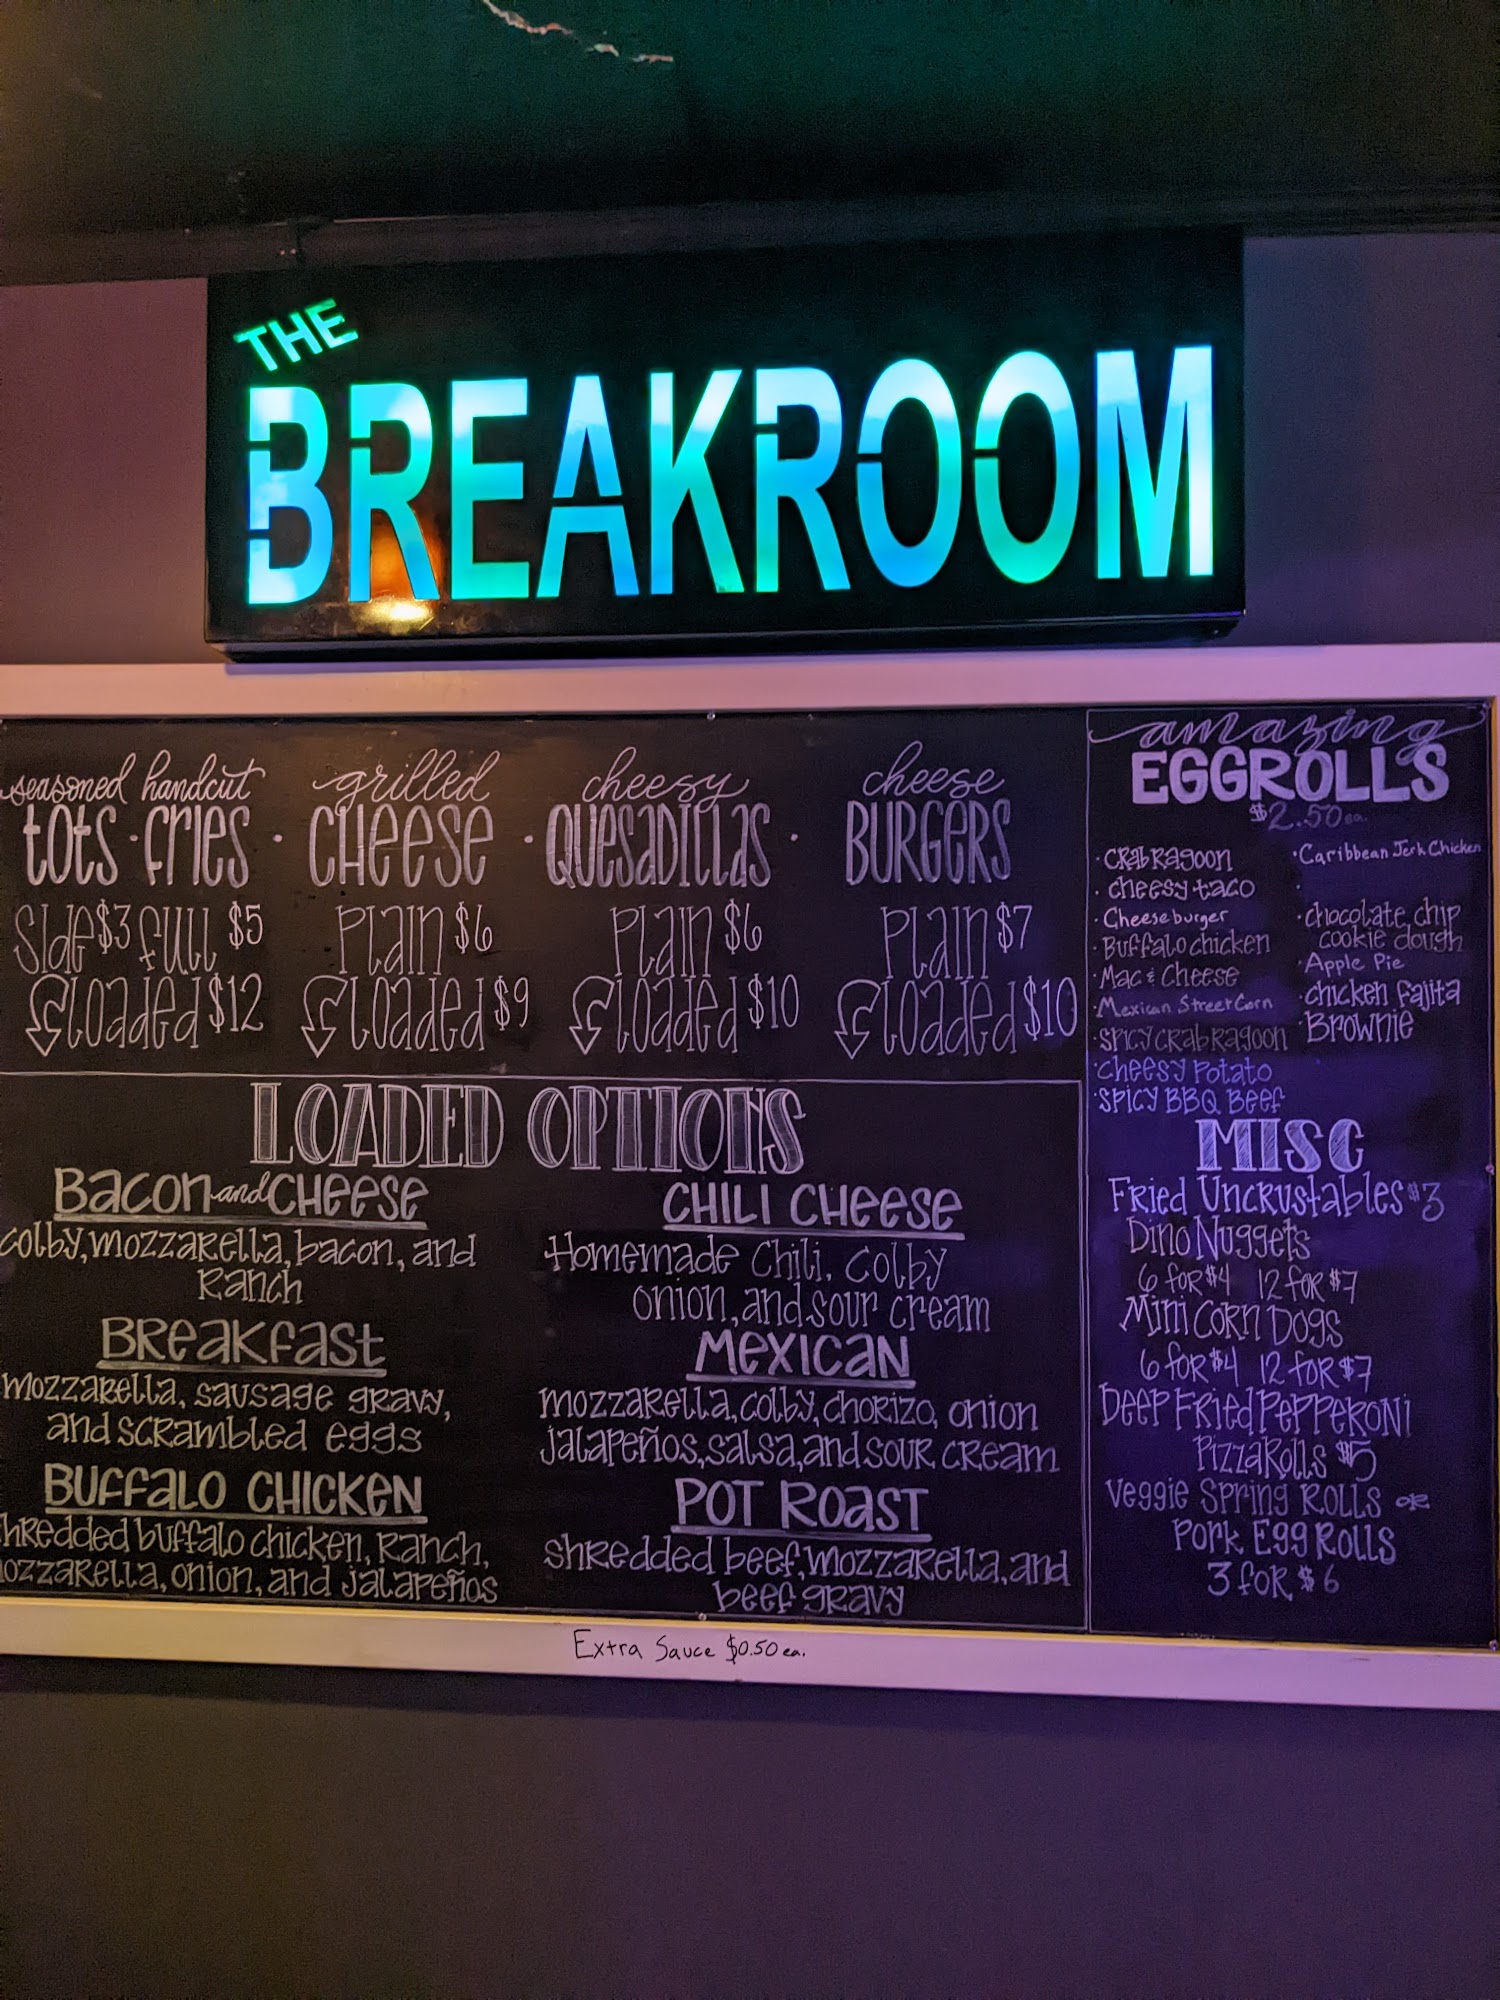 THE
BREAKROOM
seasoned handcut
tots · fries ·
side $3 full $5
loaded $12
grilled
CHEESE ·
Plain $6
loaded $9
cheesy
QUESADILLAS ·
Plain $6
loaded $10
cheese
BURGERS
Plain $7
loaded $10
LOADED OPTIONS
Bacon and CHEESE
colby, mozzarella, bacon, and
Ranch
Breakfast
mozzarella, sausage gravy,
and scrambled eggs
Buffalo CHICKEN
hredded buffalo chicken, Ranch,
ozzarella, onion, and jalapeños
CHILI CHeese
Homemade Chili, Colby
onion, and sour cream
Mexican
mozzarella, colby, chorizo, onion
jalapeños, salsa, and sour cream
POT ROAST
shredded beef, mozzarella, and
beef gravy
amazing
EGGROLLS
$2.50 ea.
· Crab Ragoon
· cheesy taco
· Cheeseburger
· Buffalo chicken
· Mac & Cheese
· Mexican Street Corn
· Spicy Crab Ragoon
· Cheesy Potato
· Spicy BBQ Beef
· Caribbean Jerk Chicken
·
· chocolate chip
cookie dough
· Apple Pie
· chicken fajita
· Brownie
MISC
Fried Uncrustables $3
Dino Nuggets
6 for $4 12 for $7
Mini Corn Dogs
6 for $4 12 for $7
Deep Fried Pepperoni
Pizza Rolls $5
Veggie Spring Rolls or
Pork Egg Rolls
3 for $6
Extra Sauce $0.50 ea.